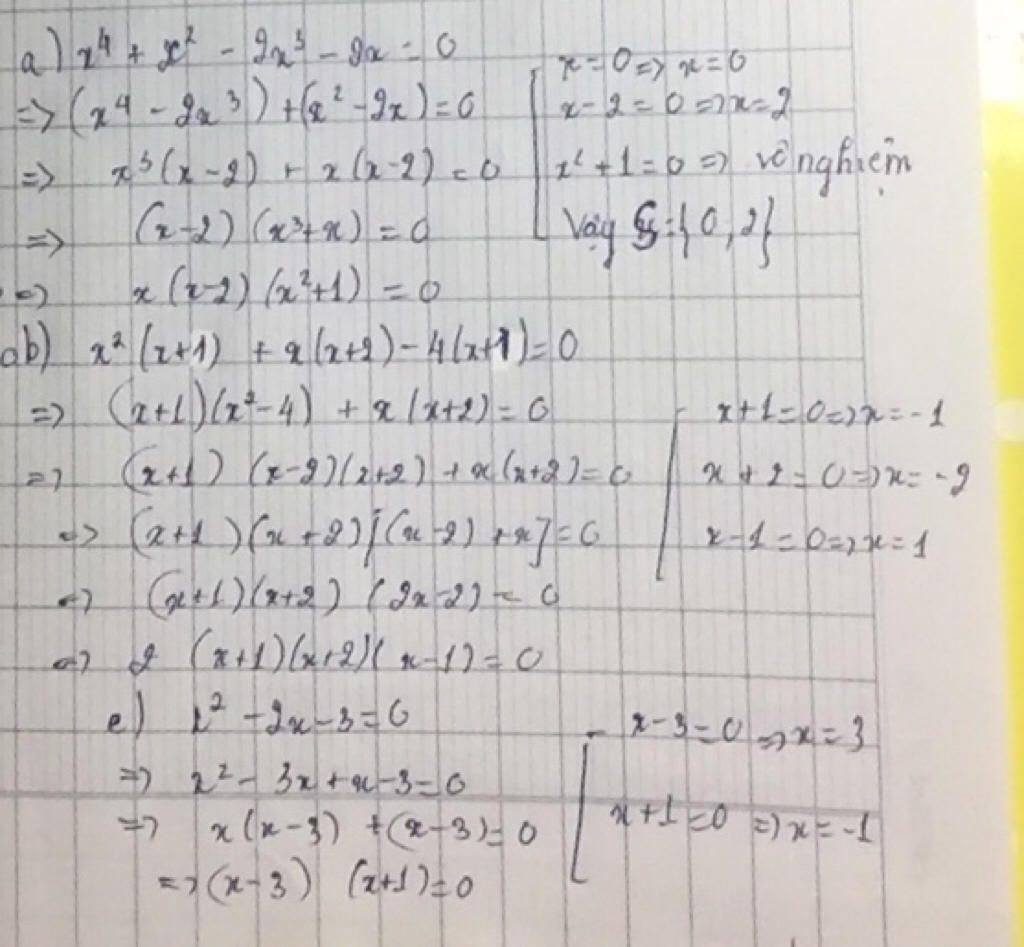 a) x⁴ + x² - 2x³ - 2x = 0
=> (x⁴ - 2x³) + (x² - 2x) = 0
=> x³(x-2) + x(x-2) = 0
=> (x-2) (x³+x) = 0
=> x (x-2) (x²+1) = 0
x = 0 => x = 0
x - 2 = 0 => x = 2
x² + 1 = 0 => vô nghiệm
Vậy S = {0, 2}
b) x² (x+1) + x(x+2) - 4(x+1) = 0
=> (x+1)(x²-4) + x(x+2) = 0
=> (x+1) (x-2)(x+2) + x(x+2) = 0
=> (x+1)(x+2)[(x-2) + x] = 0
=> (x+1)(x+2) (2x-2) = 0
=> 2 (x+1)(x+2)(x-1) = 0
x+1 = 0 => x = -1
x + 2 = 0 => x = -2
x - 1 = 0 => x = 1
e) x² - 2x - 3 = 0
=> x² - 3x + x - 3 = 0
=> x(x-3) + (x-3) = 0
=> (x-3) (x+1) = 0
x - 3 = 0 => x = 3
x + 1 = 0 => x = -1